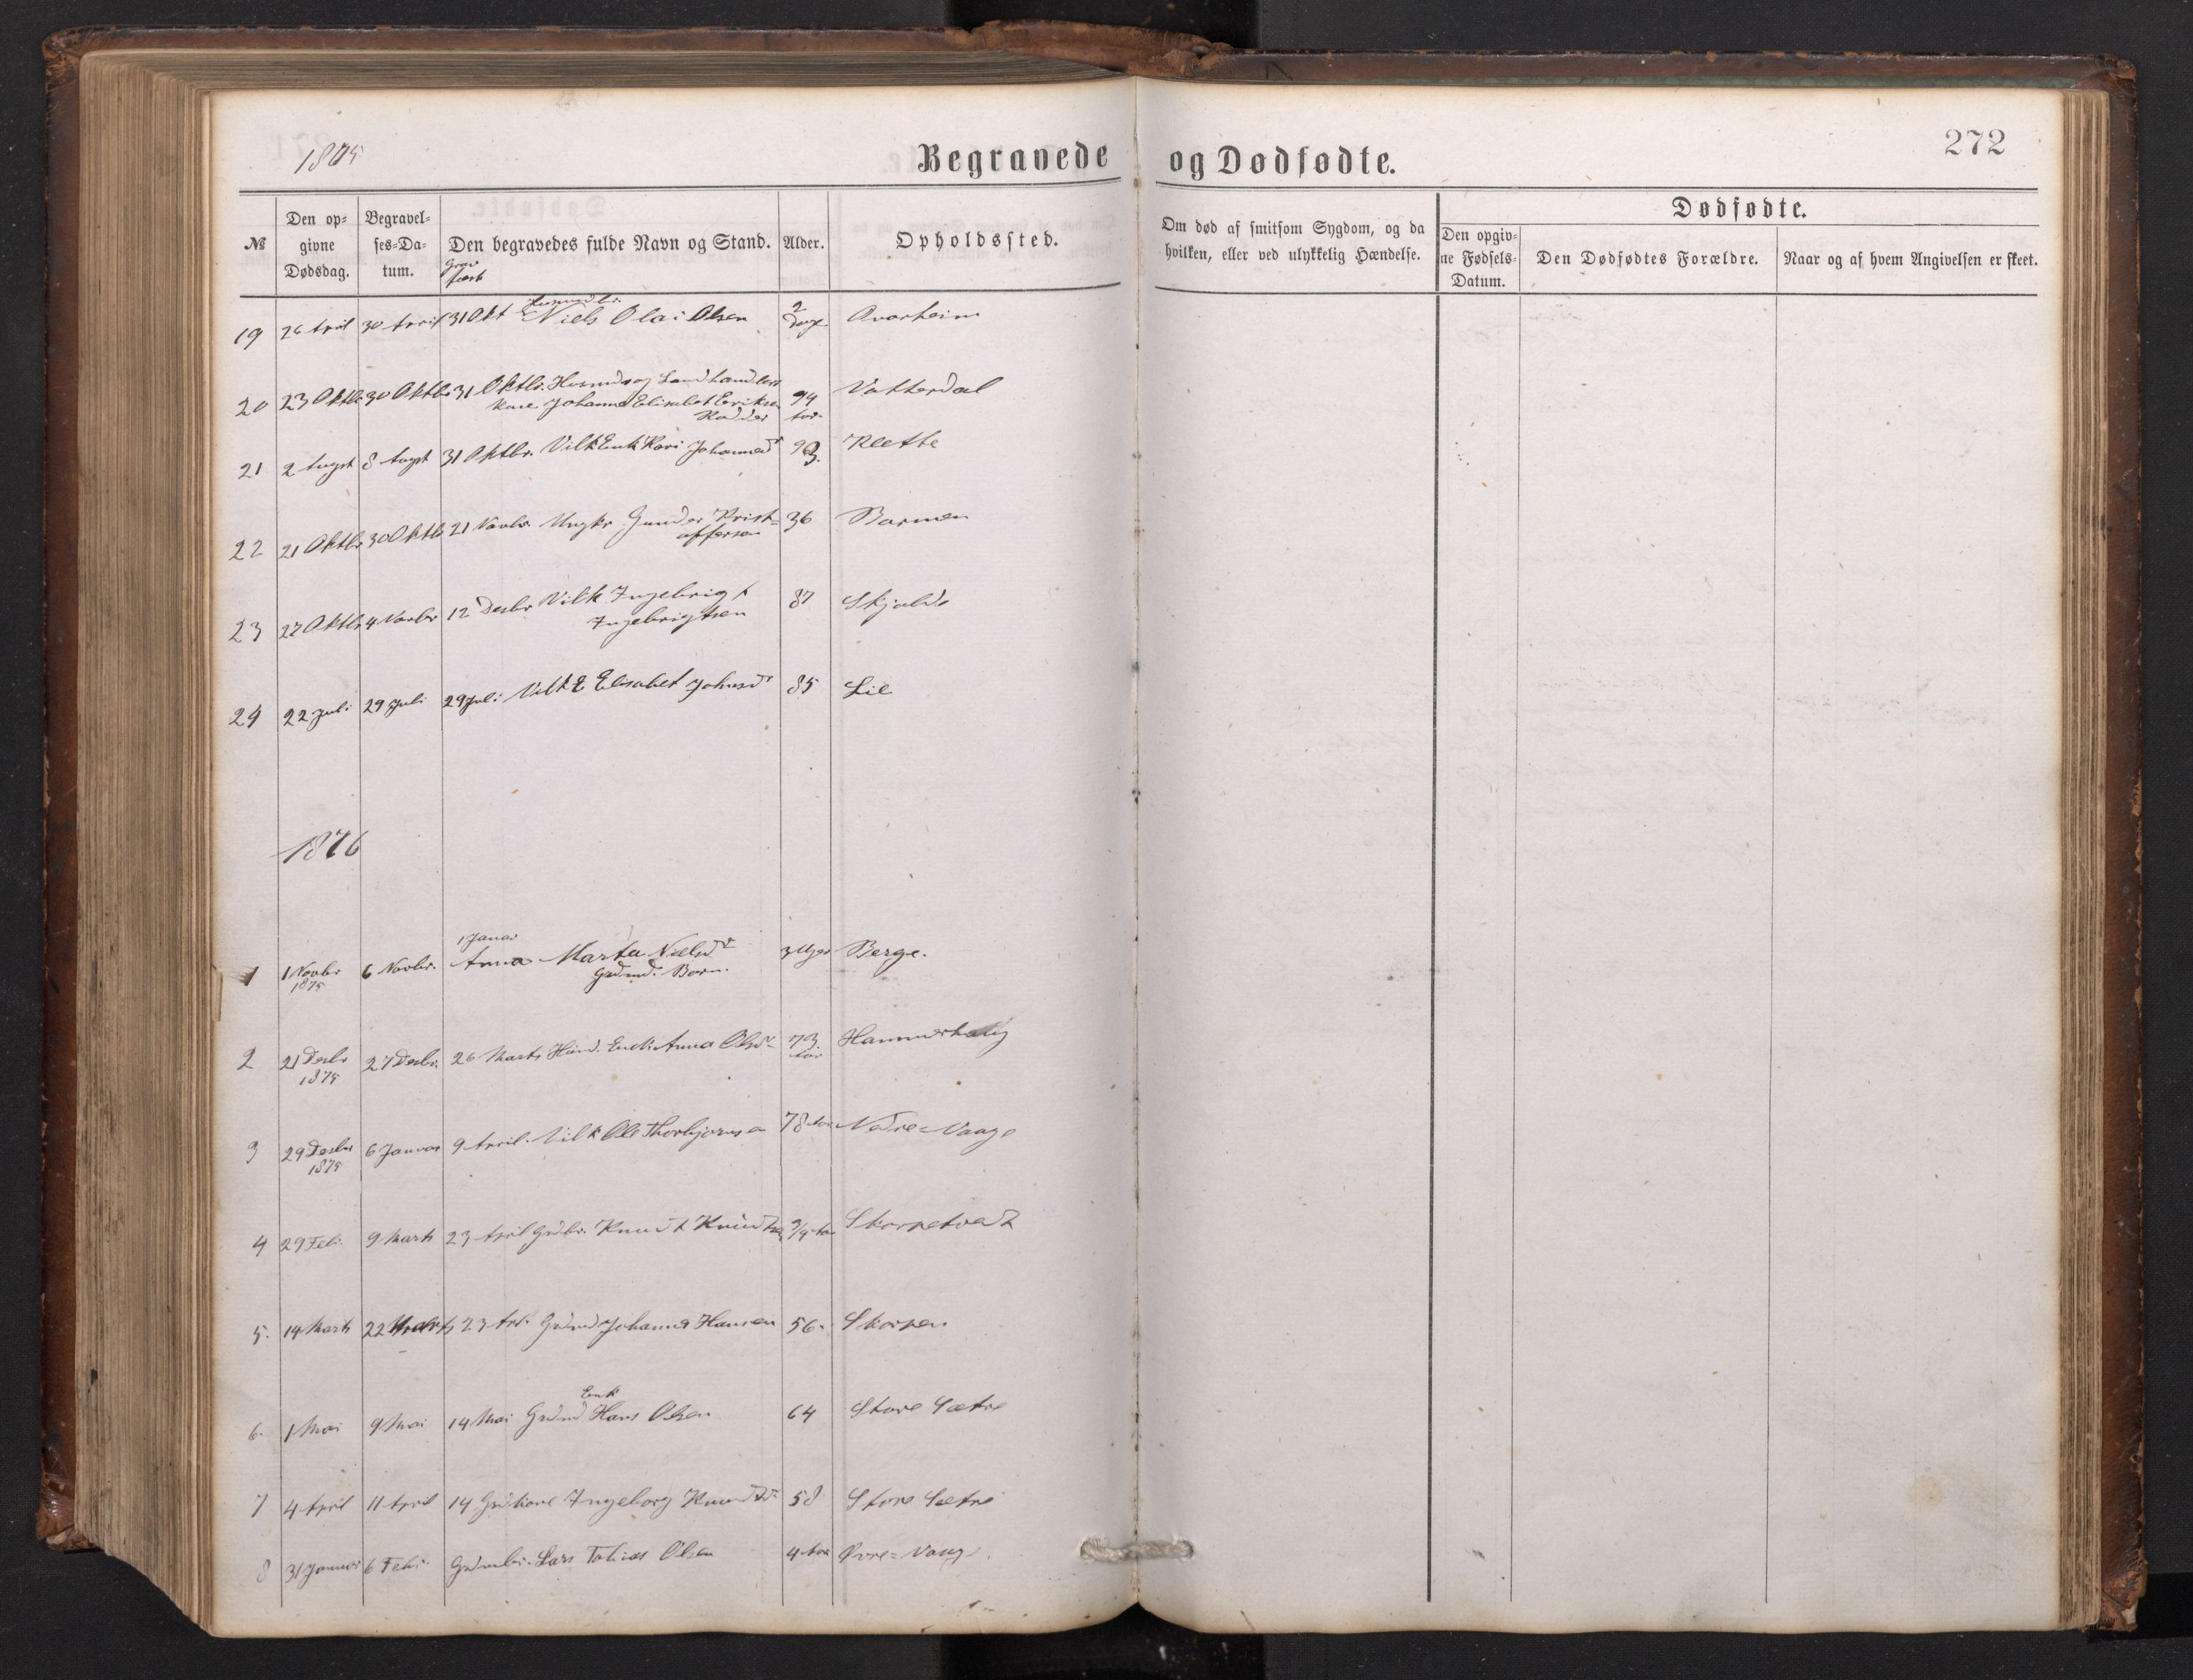 1875
Begravede og Dødfødte.
272
№
Den opgivne Dødsdag.
Begravelses-Datum.
Den begravedes fulde Navn og Stand.
Grav fæst
Alder.
Opholdssted.
Om død af smitsom Sygdom, og da hvilken, eller ved ulykkelig Hændelse.
Dødfødte.
Den opgivne Fødsels-Datum.
Den Dødfødtes Forældre.
Naar og af hvem Angivelsen er skeet.
19 26 April 30 April 31 Okt Niels Olai Olsen 2 Dage
20 23 Oktbr 30 Oktbr 31 Oktbr. Husmds og Landhandlers
Kone Johanna Elisabet Eriksen 94 Aar Vatterdal
21 2 Augst 8 Augst 31 Oktbr. Vilk Enk Kari Johannesdr 93. Klette
22 21 Oktbr 30 Oktb 21 Novbr. Ungkr Gunder Krist=
offersen 36 Barmen
23 27 Oktbr 4 Novbr 12 Desbr Vilk Ingebrigt
Ingebrigtsen 87
24 22 Juli 29 Juli 29 Juli Vilk E Elisabet Johnsdr 85 Lie
1876
1 1 Novbr 1875 6 Novbr. 1 Januar
Anna Marta Nielsdr 3 Uger Berge.
Grdmd. Barn.
2 21 Desbr 1875 27 Desbr. 26 Marts Enk. Anna Olsdr 73 Aar
3 29 Desbr 1875 6 Januar 9 April. Vilk Ole Thorbjørnsen 78 Aar Nedre=Vaage
4 29 Feb. 9 Marts 23 April Grdbr. Knudt Knudtsen 3/4 Aar
5. 14 Marts 22 Marts 23 Apr. Grdmd Johannes Hansen 56. Skorpen
6. 1 Mai 9 Mai 14 Mai Grdmd Enk Hans Olsen 64 Store Sætre
7 4 April 11 April 14 Grdkone Ingeborg Knudsdr 58 Store Sætre
8 31 Januar 6 Febr. Grdmbr. Lars Tobias Olsen 4 Aar Øvre=Vaag